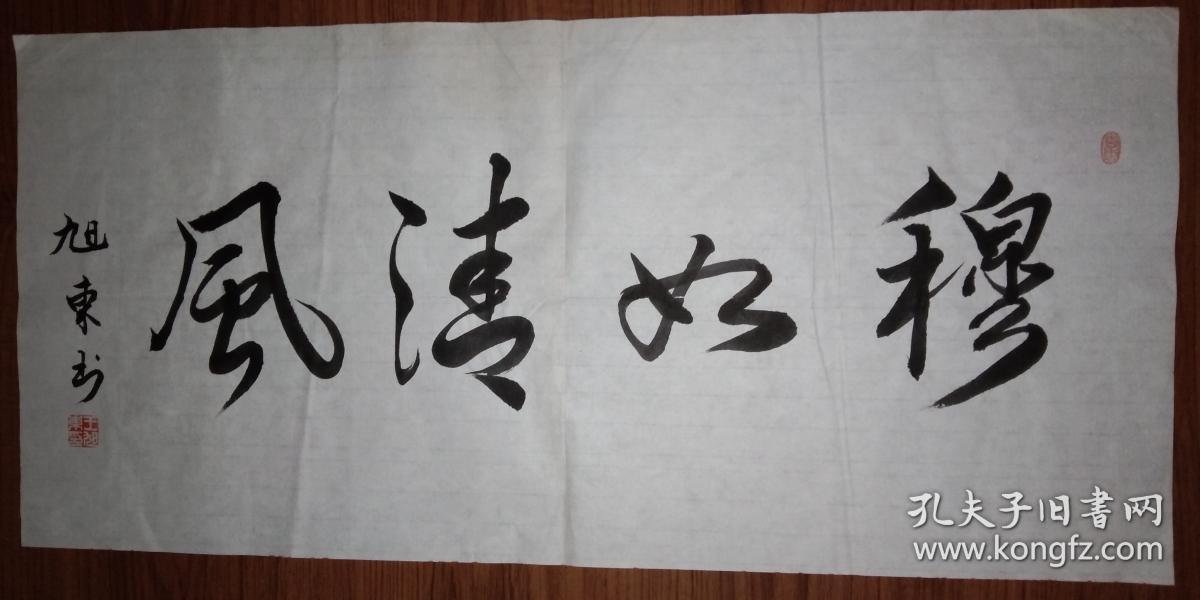 穆如清風
旭東书
孔夫子旧書网
www.kongfz.com